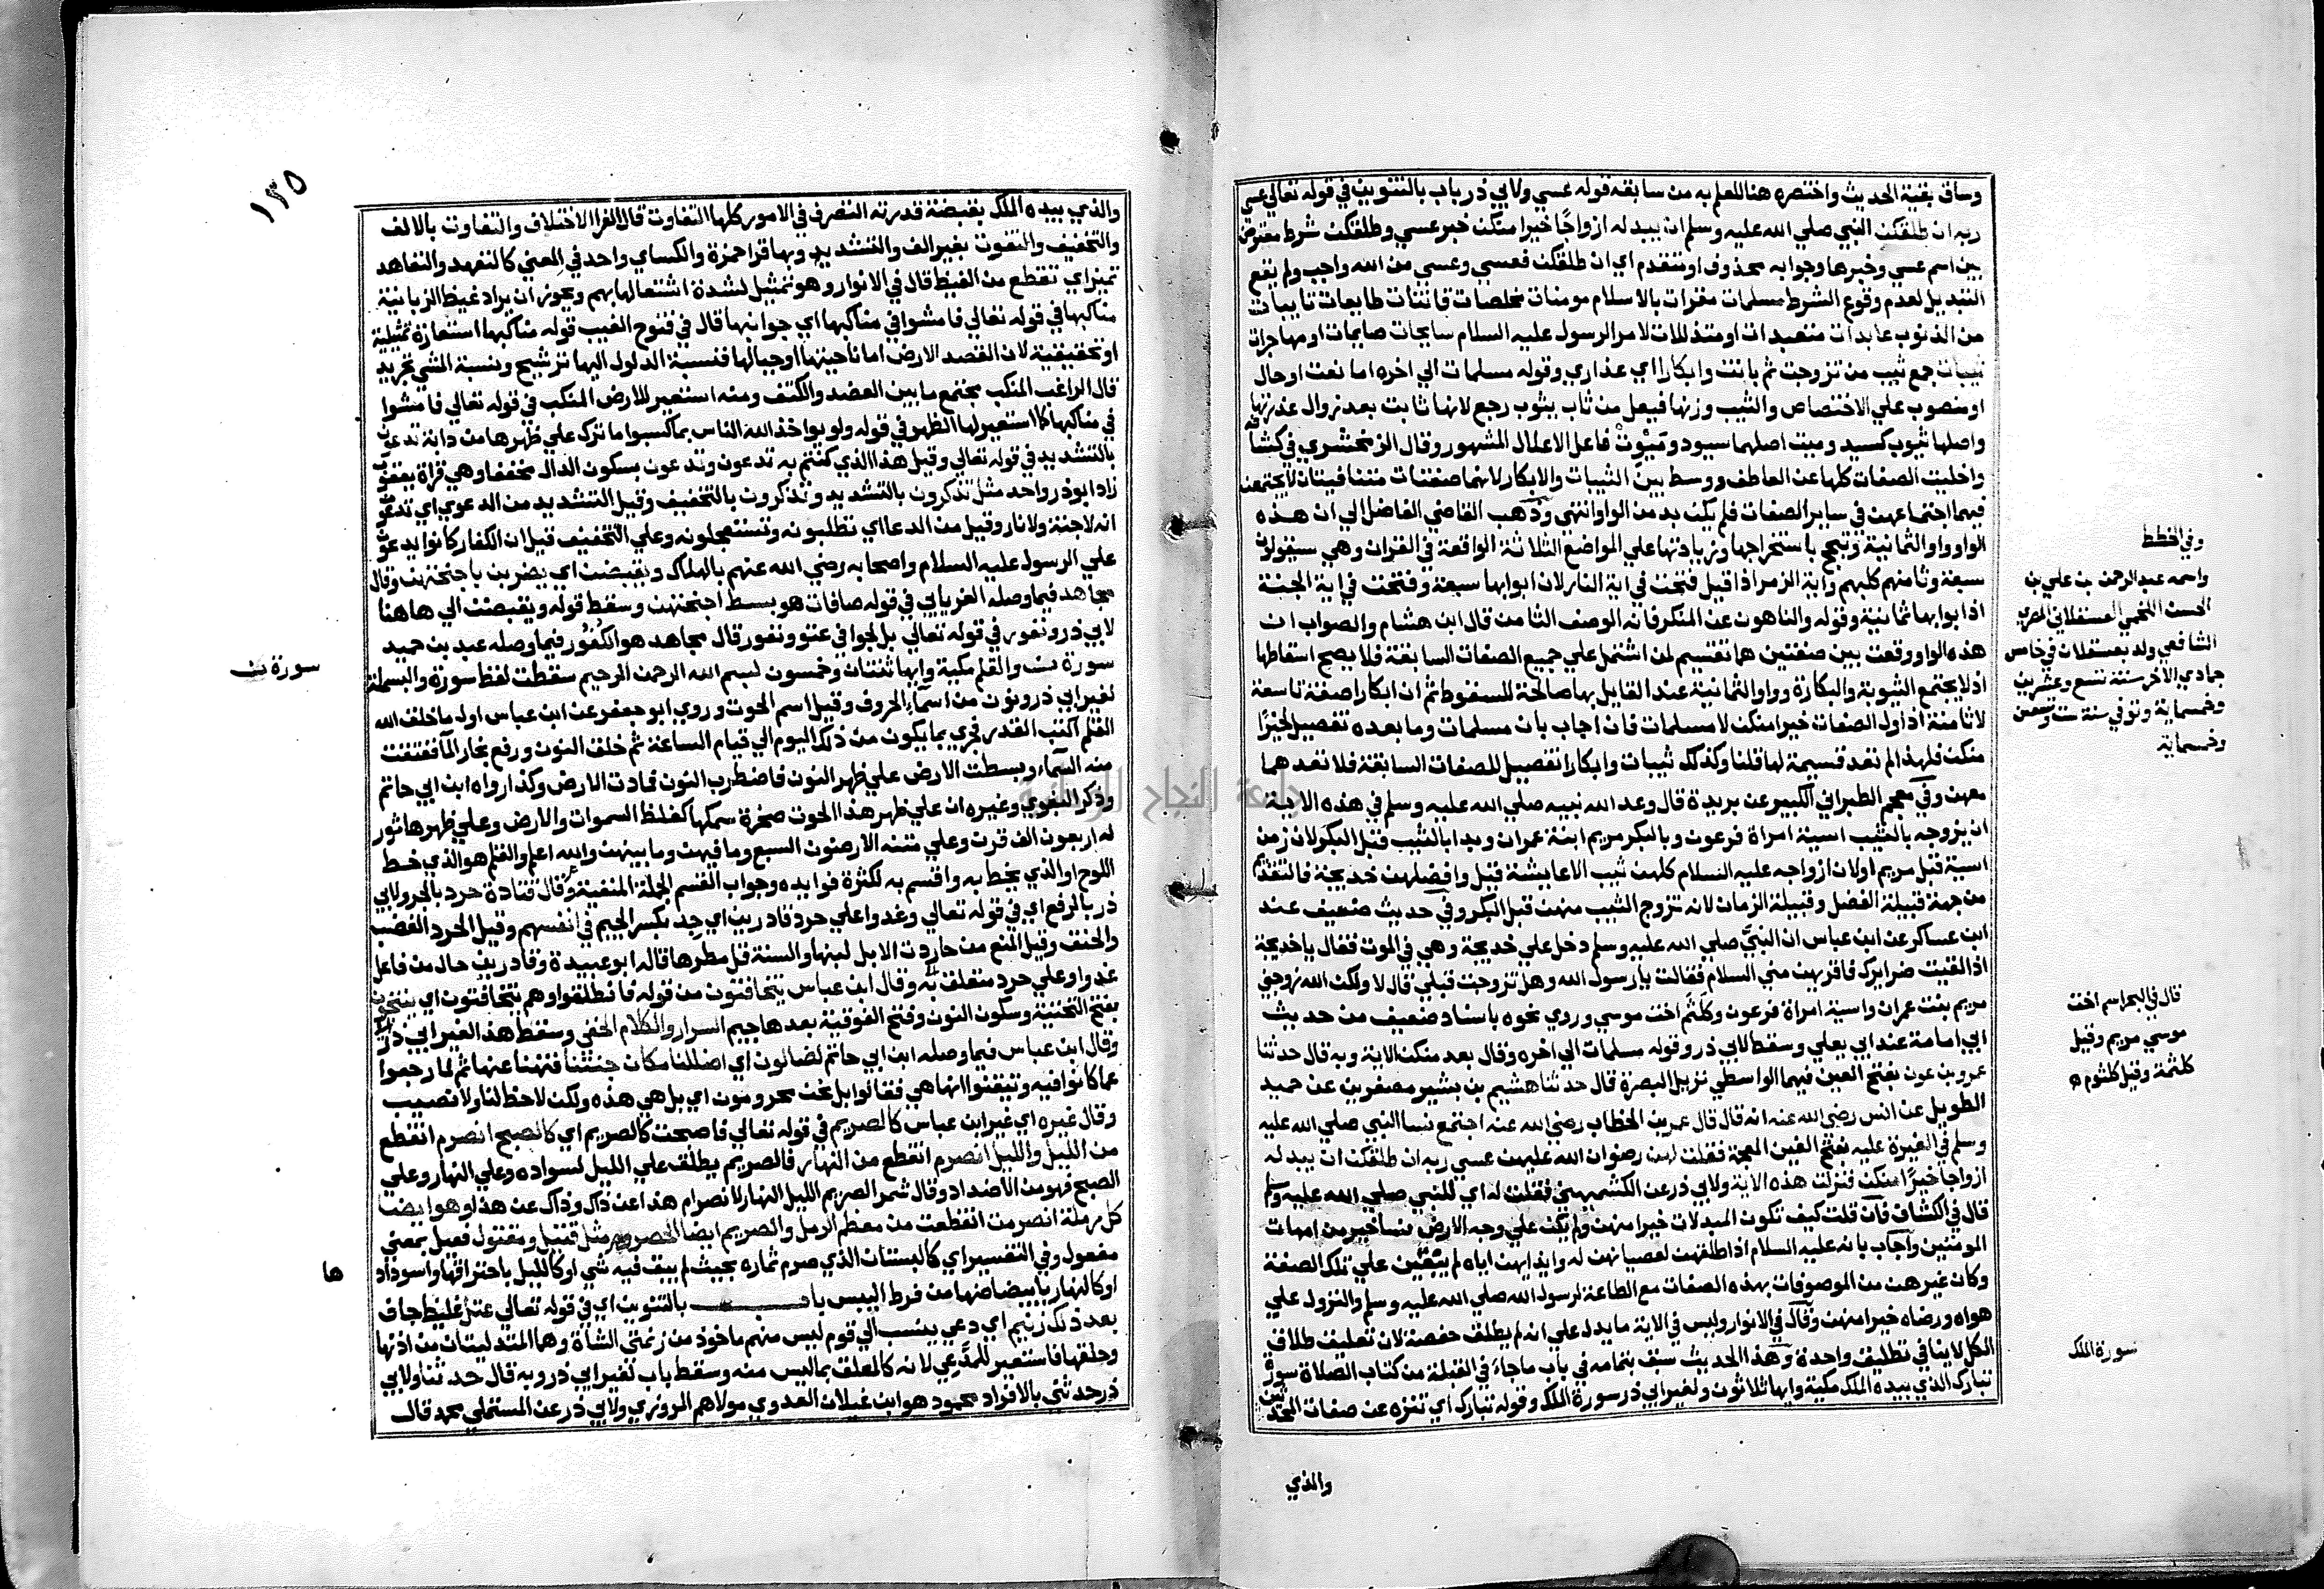 وساق بقية الحديث واختصره هنا للعلم به من سابقه قوله عسي ولابي ذر باب بالتنوين في قوله تعالي عسي
ربه ان طلقكن النبي صلي الله عليه وسلم ان يبدله ازواجًا خيرا منكن خبر عسي وطلقكن شرط معترض
بين اسم عسي وخبرها وجوابه محذوف او متقدم اي ان طلقكن فعسي وعسي من الله واجب ولم يقع
التبديل لعدم وقوع الشرط مسلمات مقرات بالاسلام مومنات مخلصات قانتات طايعات تايبات
من الذنوب عابدات متعبدات او متذللات لامر الرسول عليه السلام سايحات صايمات او مهاجرات
ثيبات جمع ثيب من تزوجت ثم بانت وابكارا اي عذاري وقوله مسلمات الي اخره اما نعت او حال
او منصوب علي الاختصاص والثيب وزنها فيعل من ثاب يثوب رجع لانها ثابت بعد زوال عذرتها
واصلها ثيوب كسيد وميت اصلهما سيود وميوت فاعل الاعلال المشهور وقال الزمخشري في كشافه
واخليت الصفات كلها عن العاطف ووسط بين الثيبات والابكار لانهما صفتان متنافيتان لا يجتمعن
فيهما اجتماعهن في ساير الصفات فلم يكن بد من الواو انتهي وذهب القاضي الفاضل الي ان هذه
الواو واو الثمانية وتبجح باستخراجها وزيادتها علي المواضع الثلاثة الواقعة في القران وهي سيقولون
سبعة وثامنهم كلبهم واية الزمر اذ قيل فتحت في اية النار لان ابوابها سبعة وفتحت في اية الجنة
اذ ابوابها ثمانية وقوله والناهون عن المنكر فانه الوصف الثامن قال ابن هشام والصواب ان
هذه الواو وقعت بين صفتين هما تقسيم لمن اشتمل علي جميع الصفات السابقة فلا يصح اسقاطها
اذ لا يجتمع الثيوبة والبكارة وواو الثمانية عند القايل بها صالحة للسقوط ثم ان ابكارا صفة تاسعة
لا ثامنة اذ اول الصفات خيرا منكن لا مسلمات فان اجاب بان مسلمات وما بعده تفصيل لخيرًا
منكن فلهذا لم تعد قسيمة لها قلنا وكذلك ثيبات وابكارا تفصيل للصفات السابقة فلا نعدهما
معهن وفي معجم الطبراني الكبير عن بريدة قال وعد الله نبيه صلي الله عليه وسلم في هذه الاية
ان يزوجه بالثيب اسية امراة فرعون وبالبكر مريم ابنة عمران وبدا بالثيب قبل البكر لان زمن
اسية قبل مريم او لان ازواجه عليه السلام كلهن ثيب الا عايشة قيل وافضلهن خديجة فالتقديم
من جهة قبيلة الفضل وقبيلة الزمان لانه تزوج الثيب منهن قبل البكر وفي حديث ضعيف عند
ابن عساكر عن ابن عباس ان النبيّ صلي الله عليه وسلم دخل علي خديجة وهي في الموت فقال يا خديجة
اذا لقيت ضرايرك فاقريهن مني السلام فقالت يا رسول الله وهل تزوجت قبلي قال لا ولكن الله زوجني
مريم بنت عمران واسية امراة فرعون وكلثم اخت موسي وروي نحوه باسناد ضعيف من حديث
ابي امامة عند ابي يعلي وسقط لابي ذر وقوله مسلمات الي اخره وقال بعد منكن الاية وبه قال حدثنا
عمرو بن عون بفتح العين فيهما الواسطي نزيل البصرة قال حدثنا هشيم بن بشير مصغرين عن حميد
الطويل عن انس رضي الله عنه انه قال قال عمر بن الخطاب رضي الله عنه اجتمع نسا النبي صلي الله عليه
وسلم في الغيرة عليه بفتح الغين المعجمة فقلت لهن رضوان الله عليهن عسي ربه ان طلقكن ان يبدله
ازواجا خيرًا منكن فنزلت هذه الاية ولابي ذر عن الكشميهني فقلت له اي للنبي صلي الله عليه وسلم
قال في الكشاف فان قلت كيف تكون المبدلات خيرا منهن ولم يكن علي وجه الارض نسا خير من امهات
المومنين واجاب بانه عليه السلام اذا طلقهن لعصيانهن له وايذايهن اياه لم يبقين علي تلك الصفة
وكان غيرهن من الموصوفات بهذه الصفات مع الطاعة لرسول الله صلي الله عليه وسلم والنزول علي
هواه ورضاه خيرا منهن وقال في الانوار وليس في الاية ما يدل علي انه لم يطلق حفصة لان تعليق طلاق
الكل لا ينافي تطليق واحدة وهذا الحديث سبق بتمامه في باب ما جاء في القبلة من كتاب الصلاة سورة
تبارك الذي بيده الملك مكية وايها ثلاثون ولغير ابي ذر سورة الملك وقوله تبارك اي تنزه عن صفات المحدثين
والذي
وفي الخطط
واحمد عبد الرحمن بن علي بن
الحسن اللخمي العسقلاني المصري
الشافعي ولد بعسقلان في خامس
جمادي الاخر سنة تسع وعشرين
وخمسماية وتوفي سنة ست وتسعين
وخمسماية
قال في البحر اسم اخت
موسي مريم وقيل
كلثمة وقيل كلثوم
سورة الملك
١٣٥
والذي بيده الملك بقبضة قدرته التصرف في الامور كلها التفاوت قال الفرا الاختلاف والتفاوت بالالف
والتخفيف والتفوت بغير الف والتشديد وبها قرا حمزة والكساي واحد في المعني كالتعهد والتعاهد
تميز اي تقطع من الغيظ قال في الانوار وهو تمثيل لشدة اشتعالها بهم ويجوز ان يراد غيظ الزبانية
مناكبها في قوله تعالي فامشوا في مناكبها اي جوانبها قال في فتوح الغيب قوله مناكبها استعارة تمثيلية
او تحقيقية لان القصد الارض اما ناحيتها او جبالها فنسبة الذلول اليها ترشيح ونسبة المشي تجريد
قال الراغب المنكب مجتمع ما بين العضد والكتف ومنه استعير للارض المنكب في قوله تعالي فامشوا
في مناكبها كما استعير لها الظهر في قوله ولو يواخذ الله الناس بما كسبوا ما ترك علي ظهرها من دابة تدعون
بالتشديد في قوله تعالي وقيل هذا الذي كنتم به تدعون وتدعون بسكون الدال مخففا وهي قراة يعقوب
زاد ابو ذر واحد مثل تذكرون بالتشديد وتذكرون بالتخفيف وقيل التشديد من الدعوي اي تدعون
انه لا جنة ولا نار وقيل من الدعا اي تطلبونه وتستعجلونه وعلي التخفيف قيل ان الكفار كانوا يدعون
علي الرسول عليه السلام واصحابه رضي الله عنهم بالهلاك ويقبضن اي يضربن باجنحتهن وقال
مجاهد فيما وصله الفريابي في قوله صافات هو بسط اجنحتهن وسقط قوله ويقبضن الي هاهنا
لابي ذر ونفور في قوله تعالي بل لجوا في عتو ونفور قال مجاهد هو الكُفُور فيما وصله عبد بن حميد
سورة ن والقلم مكية وايها ثنتان وخمسون بسم الله الرحمن الرحيم سقطت لفظ سورة والبسملة
لغير ابي ذر ونون من اسماء الحروف وقيل اسم الحوت وروي ابو جعفر عن ابن عباس اول ما خلق الله
القلم اكتب القدر فجري بما يكون من ذلك اليوم الي قيام الساعة ثم خلق النون ورفع بخار الماء ففتقت
منه السماء وبسطت الارض علي ظهر النون فاضطرب النون فمادت الارض وكذا رواه ابن ابي حاتم
وذكر البغوي وغيره ان علي ظهر هذا الحوت صخرة سمكها كغلظ السموات والارض وعلي ظهرها ثور
له اربعون الف قرن وعلي متنه الارضون السبع وما فيهن وما بينهن والله اعلم والقلم هو الذي خط
اللوح او الذي يخط به واقسم به لكثرة فوايده وجواب القسم الجملة المنفية وقال قتادة حرد بالجر ولابي
ذر بالرفع اي في قوله تعالي وغدوا علي حرد قادرين اي جِد بكسر الجيم في انفسهم وقيل الحرد الغضب
والحنق وقيل المنع من حاردت الابل لبنها والسنة قل مطرها قاله ابو عبيدة وقادرين حال من فاعل
غدوا وعلي حرد متعلق به وقال ابن عباس يتخافتون من قوله فانطلقوا وهم يتخافتون اي ينتجون
بفتح التحتية وسكون النون وفتح الفوقية بعدها جيم السرار والكلام الخفي وسقط هذا لغير ابي ذر
وقال ابن عباس فيما وصله ابن ابي حاتم لضالون اي اضللنا مكان جنتنا فتهنا عنها ثم لما رجعوا
عما كانوا فيه وتيقنوا انها هي فقالوا بل نحن محرومون اي بل هي هذه ولكن لا حظ لنا ولا نصيب
وقال غيره اي غير ابن عباس كالصريم في قوله تعالي فاصبحت كالصريم اي كالصبح انصرم انقطع
من الليل والليل انصرم انقطع من النهار فالصريم يطلق علي الليل لسواده وعلي النهار وعلي
الصبح فهو من الاضداد وقال شمر الصريم الليل النهار لانصرام هذا عن ذاك وذاك عن هذا وهو ايضا
كل رملة انصرمت انقطعت من معظم الرمل والصريم ايضا المصروم مثل قتيل ومقتول فعيل بمعني
مفعول وفي التفسير اي كالبستان الذي صرم ثماره بحيث لم يبق فيه شي او كالليل باحتراقها واسوداد
او كالنهار بابيضاضها من فرط اليبس باب بالتنوين اي في قوله تعالي عتل غليظ جاف
بعد ذلك زنيم اي دعي ينسب الي قوم ليس منهم ماخوذ من زنمتي الشاة وهما المتدليتان من اذنها
وحلقها فاستعير للمدَّعي لانه كالمعلق بما ليس منه وسقط باب لغير ابي ذر وبه قال حدثنا ولابي
ذر حدثني بالافراد محمود هو ابن غيلان العدوي مولاهم المروزي ولابي ذر عن المستملي محمد قال
سورة ن
ها
جامعة النجاح الوطنية